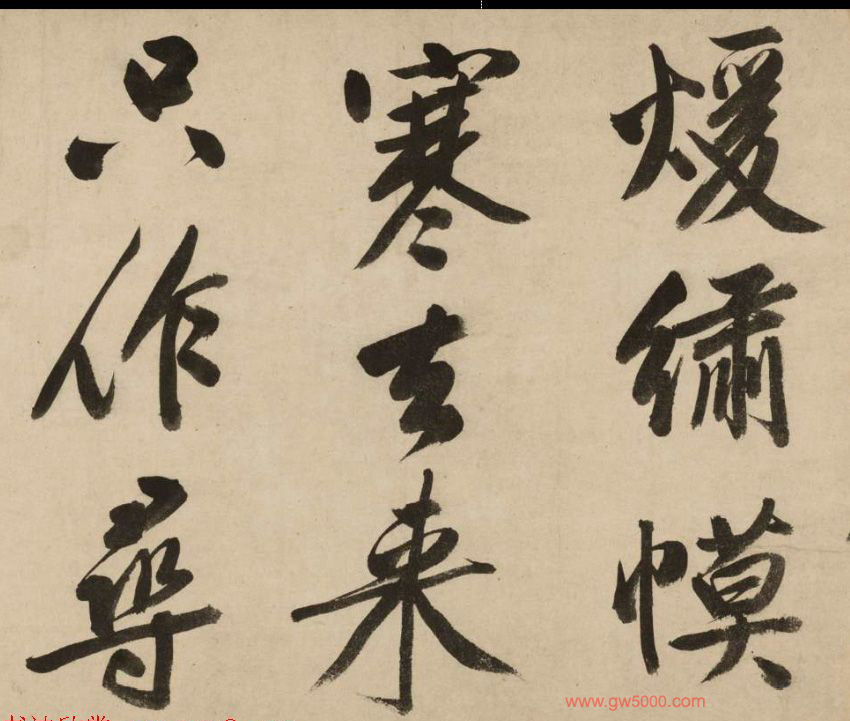 煖繡幙
寒去来
只作尋
www.gw5000.com